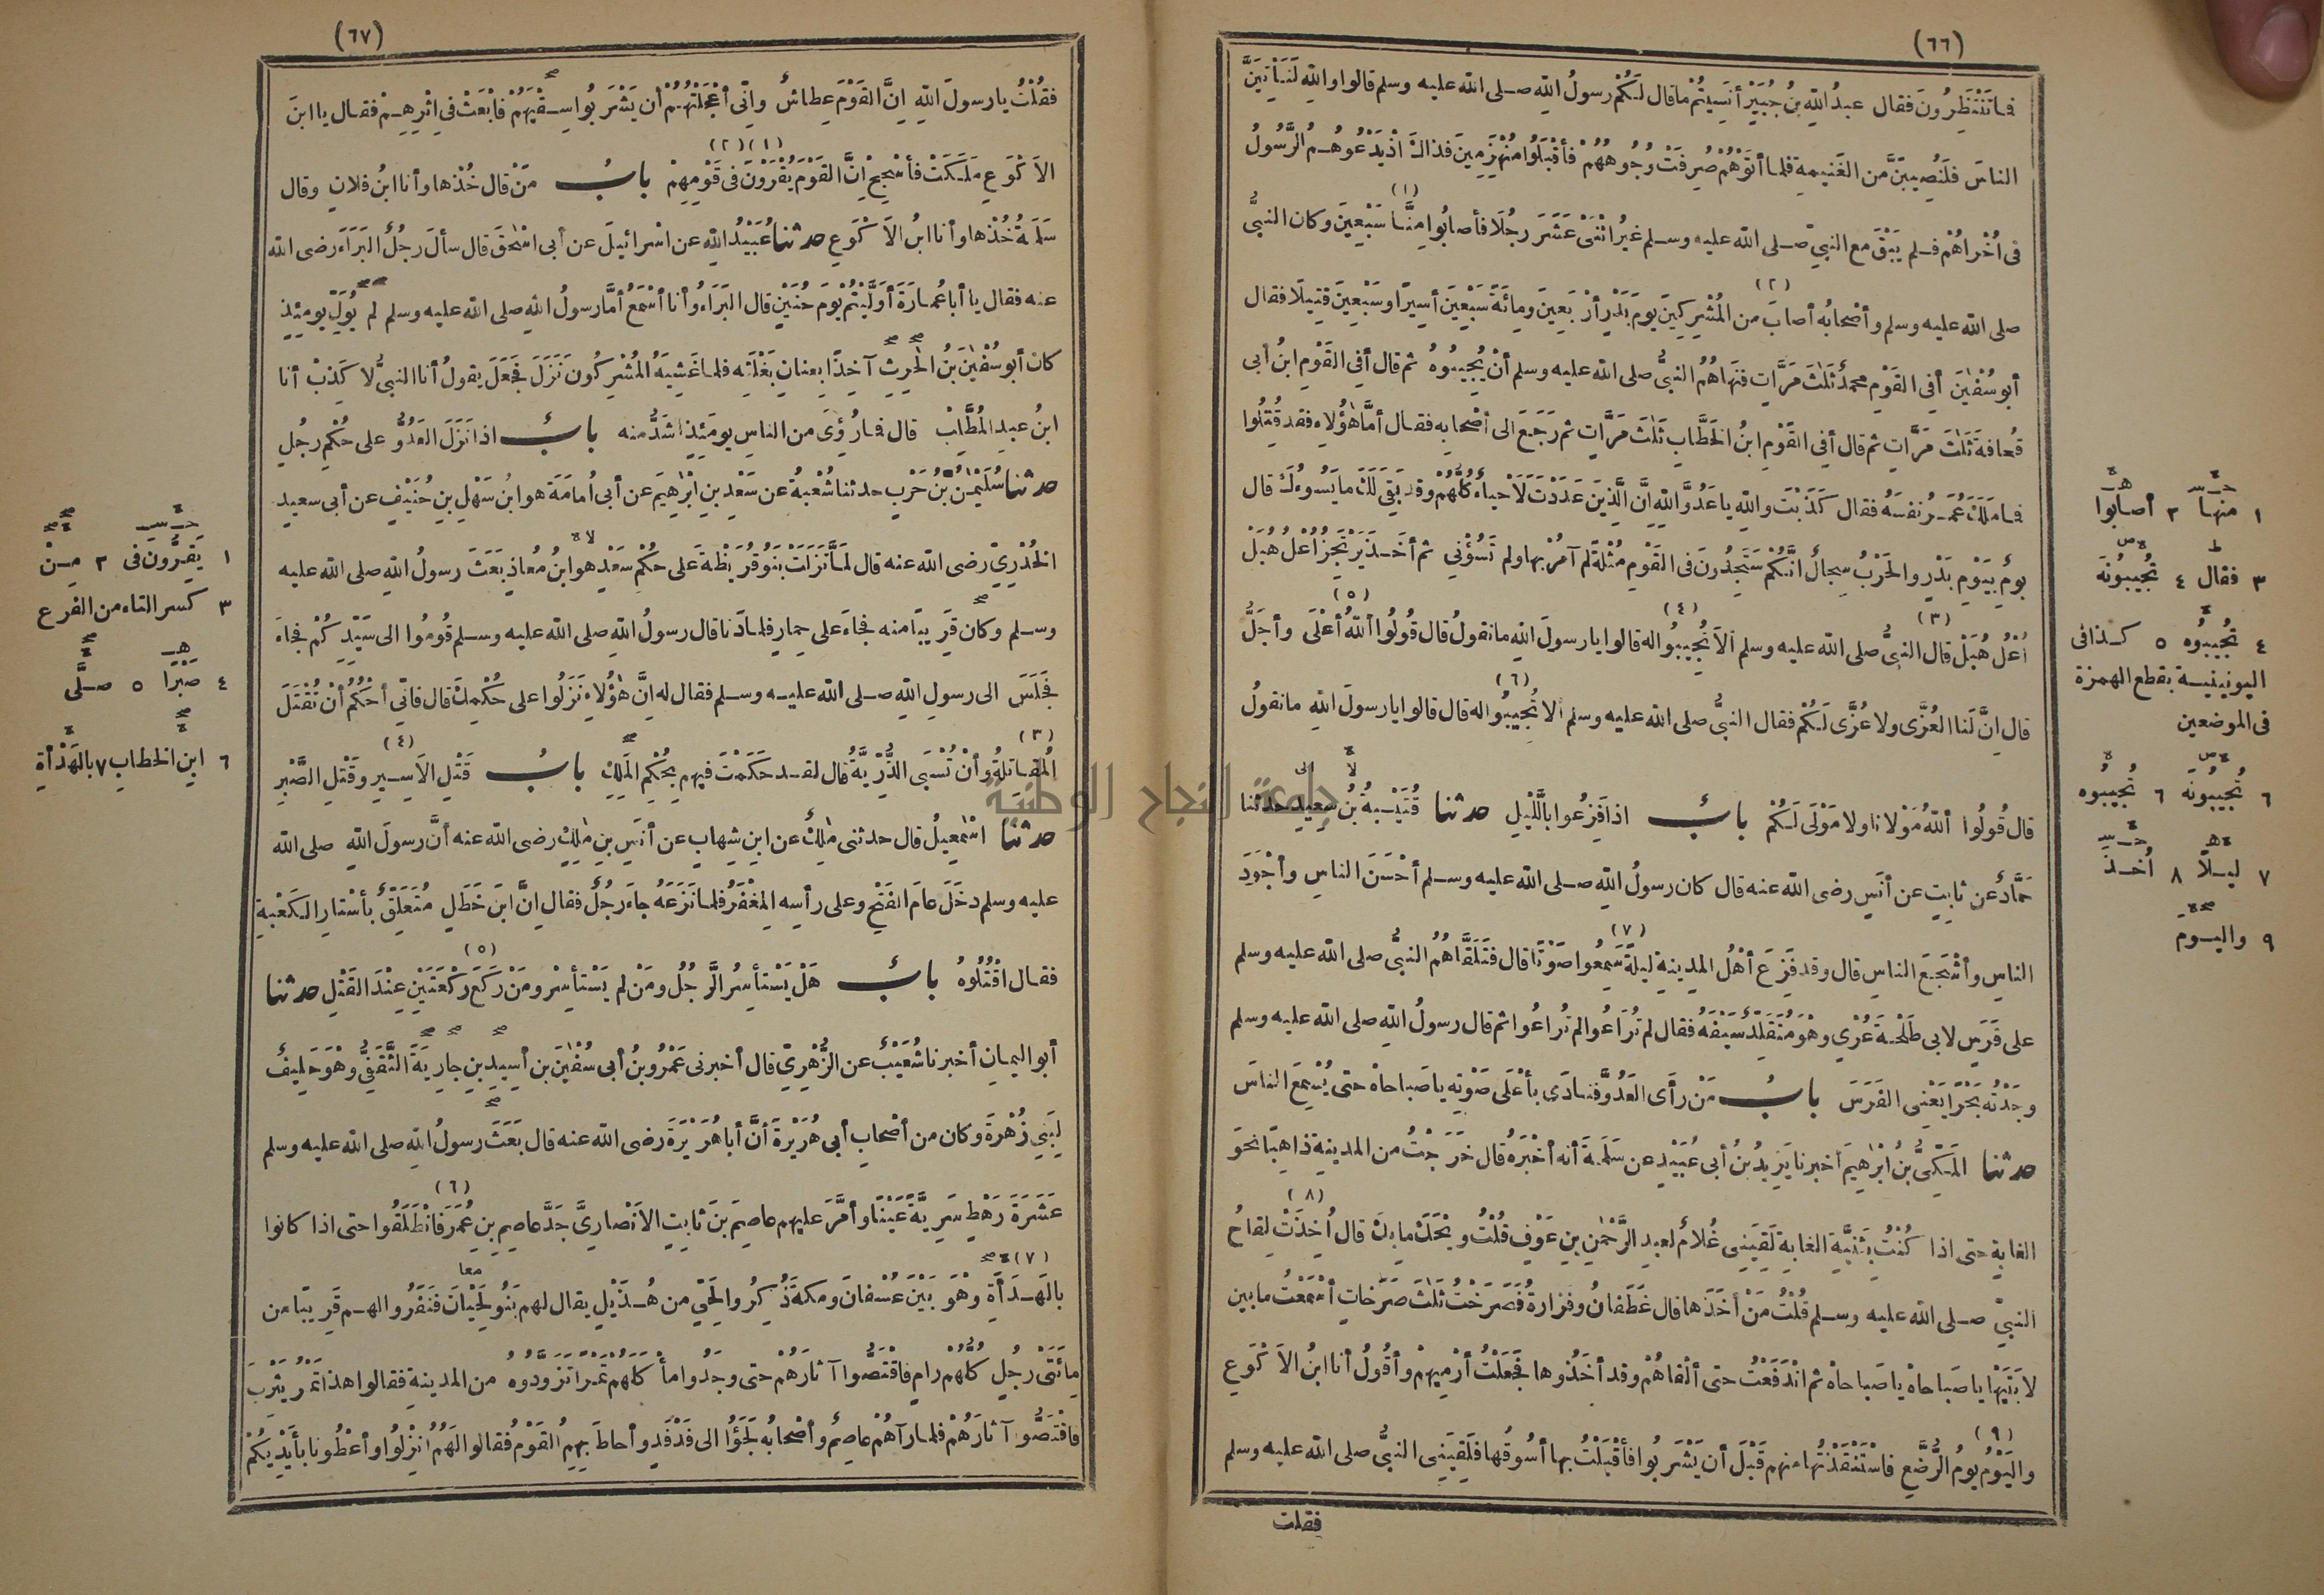 (٦٦)
فما تَنْتَظِرُونَ فقال عبدُ اللّهِ بنُ جُبَيْرٍ أَنَسِيتُمْ ما قال لَكُمْ رسولُ اللّهِ صلى الله عليه وسلم قالوا واللّهِ لَنَأْتِيَنَّ
الناسَ فلَنُصِيبَنَّ من الغَنِيمةِ فلما أَتَوْهُمْ صُرِفَتْ وُجُوهُهُمْ فأَقْبَلُوا مُنْهَزِمِينَ فذاكَ اذْ يَدْعُوهُمُ الرَّسُولُ
فى أُخْرَاهُمْ فلم يَبْقَ مع النبىّ صلى الله عليه وسلم غيرُ اثْنَىْ عَشَرَ رجُلًا فأصابُوا (١) مِنَّا سَبْعِينَ وكان النبىُّ
صلى الله عليه وسلم وأصْحابُه أصابَ من المُشْرِكِينَ يومَ بَدْرٍ (٢) أرْبَعِينَ ومِائةً سَبْعِينَ أسِيرًا وسَبْعِينَ قتِيلًا فقال
أبو سُفْيٰنَ أفى القَوْمِ محمدٌ ثَلٰثَ مَرَّاتٍ فنَهَاهُمُ النبىُّ صلى الله عليه وسلم أنْ يُجِيبُوهُ ثم قال أفى القَوْمِ ابنُ أبى
قُحافةَ ثَلٰثَ مَرَّاتٍ ثم قال أفى القَوْمِ ابنُ الخَطَّابِ ثَلٰثَ مَرَّاتٍ ثم رَجَعَ الى أصْحابِه فقال أمَّا هٰؤُلاءِ فقد قُتِلُوا
فما مَلَكَ عُمَرُ نفسَهُ فقال كَذَبْتَ واللّهِ يا عَدُوَّ اللّهِ إنَّ الَّذِينَ عَدَدْتَ لَأَحْياءٌ كُلُّهُمْ وقد بَقِىَ لَكَ ما يَسُوءُكَ قال
يومٌ بيَوْمِ بَدْرٍ والحَرْبُ سِجالٌ انَّكُمْ سَتَجِدُونَ فى القَوْمِ مُثْلةً لم آمُرْ بها ولم تَسُؤْنِى ثم أخَذَ يَرْتَجِزُ أُعْلُ هُبَلْ
أُعْلُ هُبَلْ قال (٣) النبىُّ صلى الله عليه وسلم ألا (٤) تُجِيبُوا له قالوا يا رسولَ اللّهِ ما نقولُ قال قُولُوا (٥) أللّهُ أعْلَى وأجَلُّ
قال إنَّ لَنا العُزَّى ولا عُزَّى لَكُمْ فقال النبىُّ صلى الله عليه وسلم ألا (٦) تُجِيبُوا له قال قالوا يا رسولَ اللّهِ ما نقولُ
قال قُولُوا أللّهُ مَوْلانا ولا مَوْلَى لَكُمْ بابٌ اذا فَزِعُوا باللَّيْلِ حدثنا قُتَيْبةُ بنُ سعِيدٍ حدثنا
حَمَّادٌ عن ثابِتٍ عن أنَسٍ رضى الله عنه قال كان رسولُ اللّهِ صلى الله عليه وسلم أحْسَنَ الناسِ وأجْوَدَ
الناسِ وأشْجَعَ الناسِ قال وقد فَزِعَ أهْلُ المدينةِ ليلةً (٧) سَمِعُوا صَوْتًا قال فَتَلَقَّاهُمُ النبىُّ صلى الله عليه وسلم
على فَرَسٍ لابى طَلْحةَ عُرْىٍ وهْوَ مُتَقَلِّدٌ سَيْفَهُ فقال لم تُرَاعُوا لم تُرَاعُوا ثم قال رسولُ اللّهِ صلى الله عليه وسلم
وجَدْتُه بَحْرًا يَعْنِى الفَرَسَ بابُ مَنْ رأَى العَدُوَّ فنادَى بأعْلَى صَوْتِه يا صَباحاهْ حتى يُسْمِعَ الناسَ
حدثنا المَكِّىُّ بنُ ابْرٰهِيمَ أخبرنا يَزِيدُ بنُ أبى عُبَيْدٍ عن سَلَمةَ أنه أخْبَرَهُ قال خَرَجْتُ من المدينةِ ذاهِبًا نحوَ
الغابةِ حتى اذا كُنْتُ بثَنِيَّةِ الغابةِ لَقِيَنِى غُلامٌ لعبدِ الرَّحْمٰنِ بنِ عَوْفٍ قُلْتُ ويْحَكَ ما بِكَ قال (٨) أُخِذَتْ لِقاحُ
النبىّ صلى الله عليه وسلم قُلْتُ مَنْ أخَذَها قال غَطَفانُ وفَزارةُ فَصَرَخْتُ ثَلٰثَ صَرَخاتٍ أسْمَعْتُ ما بين
لابَتَيْها يا صَباحاهْ يا صَباحاهْ ثم انْدَفَعْتُ حتى ألْقاهُمْ وقد أخَذُوها فَجَعَلْتُ أرْمِيهِمْ وأقُولُ أنا ابنُ الاَكْوَعِ
(٩) واليَوْمُ يومُ الرُّضَّعِ فاسْتَنْقَذْتُها منهم قَبْلَ أن يَشْرَبُوا فأقْبَلْتُ بها أسُوقُها فلَقِيَنِى النبىُّ صلى الله عليه وسلم
فقلت
١ منها ٢ أصابوا
٣ فقال ٤ تُجِيبُونَه
٤ تُجِيبُوه ٥ كذا فى
اليونينية بقطع الهمزة
فى الموضعين
٦ تُجِيبُونَه ٦ تُجِيبُوه
٧ ليلًا ٨ أُخِذَ
٩ واليوم
(٦٧)
فقُلْتُ يا رسولَ اللّهِ إنَّ القَوْمَ عِطاشٌ وإنّى أعْجَلْتُهُمْ أن يَشْرَبُوا سِقْيَهُمْ فابْعَثْ فى اثْرِهِمْ فقال يا ابنَ
الاَكْوَعِ مَلَكْتَ فأَسْجِحْ إنَّ القَوْمَ (١) يُقْرَوْنَ (٢) فى قَوْمِهِمْ بابُ مَنْ قال خُذْها وأنا ابنُ فلانٍ وقال
سَلَمةُ خُذْها وأنا ابنُ الاَكْوَعِ حدثنا عُبَيْدُ اللّهِ عن اسْرائيلَ عن أبى اسْحٰقَ قال سألَ رجُلٌ البَرَاءَ رضى الله
عنه فقال يا أبا عُمارةَ أوَلَّيْتُمْ يومَ حُنَيْنٍ قال البَرَاءُ وأنا أسْمَعُ أمَّا رسولُ اللّهِ صلى الله عليه وسلم لم يُوَلِّ يومئِذٍ
كان أبو سُفْيٰنَ بنُ الحٰرِثِ آخِذًا بعِنانِ بَغْلَتِه فلما غَشِيَهُ المُشْرِكُون نَزَلَ فَجَعَلَ يقولُ أنا النبىُّ لا كَذِبْ أنا
ابنُ عبدِ المُطَّلِبْ قال فما رُؤِىَ من الناسِ يومَئِذٍ أشَدُّ منه بابٌ اذا نَزَلَ العَدُوُّ على حُكْمِ رجُلٍ
حدثنا سُلَيْمٰنُ بنُ حَرْبٍ حدثنا شُعْبةُ عن سَعْدِ بنِ ابْرٰهِيمَ عن أبى أُمامَةَ هو ابنُ سَهْلِ بنِ حُنَيْفٍ عن أبى سعيد
الخُدْرِىّ رضى الله عنه قال لَمَّا نَزَلَتْ بَنُو قُرَيْظةَ على حُكْمِ سَعْدٍ هو ابنُ مُعاذٍ بَعَثَ رسولُ اللّهِ صلى الله عليه
وسلم وكان قَرِيبًا منه فجاءَ على حِمارٍ فلما دَنا قال رسولُ اللّهِ صلى الله عليه وسلم قُومُوا الى سَيِّدِكُمْ فجاءَ
فجَلَسَ الى رسولِ اللّهِ صلى الله عليه وسلم فقال له إنَّ هٰؤُلاءِ نَزَلُوا على حُكْمِكَ قال فإنّى أحْكُمُ أنْ تُقْتَلَ
المُقاتِلةُ (٣) وأنْ تُسْبَى الذُّرّيَّةُ قال لقد حَكَمْتَ فيهم بحُكْمِ المَلِكِ بابُ قَتْلِ الاَسِيرِ (٤) وقَتْلِ الصَّبْرِ
حدثنا اسْمٰعِيلُ قال حدثنى مٰلِكٌ عن ابنِ شِهابٍ عن أنَسِ بنِ مٰلِكٍ رضى الله عنه أنَّ رسولَ اللّهِ صلى الله
عليه وسلم دخَلَ عامَ الفَتْحِ وعلى رأسِه المِغْفَرُ فلما نَزَعَهُ جاءَ رجُلٌ فقال إنَّ ابنَ خَطَلٍ مُتَعَلِّقٌ بأسْتارِ الكَعْبةِ
فقال اقْتُلُوهُ بابٌ هَلْ يَسْتأسِرُ الرَّجُلُ ومَنْ لم يَسْتأسِرْ ومَنْ (٥) رَكَعَ رَكْعَتَيْنِ عِنْدَ القَتْلِ حدثنا
أبو اليمانِ أخبرنا شُعَيْبٌ عن الزُّهْرِىّ قال أخبرنى عَمْرُو بنُ أبى سُفْيٰنَ بنِ أَسِيدِ بنِ جارِيَةَ الثَّقَفِىُّ وهْوَ حَلِيفٌ
لِبَنِى زُهْرةَ وكان من أصْحابِ أبى هُرَيْرةَ أنَّ أبا هُرَيْرَةَ رضى الله عنه قال بَعَثَ رسولُ اللّهِ صلى الله عليه وسلم
عَشَرَةَ رَهْطٍ سَرِيَّةً عَيْنًا وأمَّرَ عليهم عاصِمَ بنَ ثابِتٍ الاَنْصارِىَّ جَدَّ عاصِمِ بنِ عُمَرَ (٦) فانْطَلَقُوا حتى اذا كانوا
بالهَدَأَةِ (٧) وهْوَ بَيْنَ عُسْفانَ ومكةَ ذُكِرُوا لِحَىٍّ من هُذَيْلٍ يقال لهم بَنُو لِحْيَانَ فنَفَرُوا لهم قَرِيبًا من
مِائَتَىْ رجُلٍ كُلُّهُمْ رامٍ فاقْتَصُّوا آثارَهُمْ حتى وجَدُوا مأْكَلَهُمْ تَمْرًا تَزَوَّدُوهُ من المدينةِ فقالوا هذا تَمْرُ يَثْرِبَ
فاقْتَصُّوا آثارَهُمْ فلما رآهُمْ عاصِمٌ وأصْحابُه لَجَؤُا الى فَدْفَدٍ وأحاطَ بِهِمُ القَوْمُ فقالوا لهَمُ انْزِلُوا وأعْطُونا بأَيْدِيكُمْ
١ يَقِرُّون فى ٢ مِنْ
٣ كسر التاء من الفرع
٤ صَبْرًا ٥ صلَّى
٦ ابن الخطاب ٧ بالهَدْأةِ
جامعة النجاح الوطنية